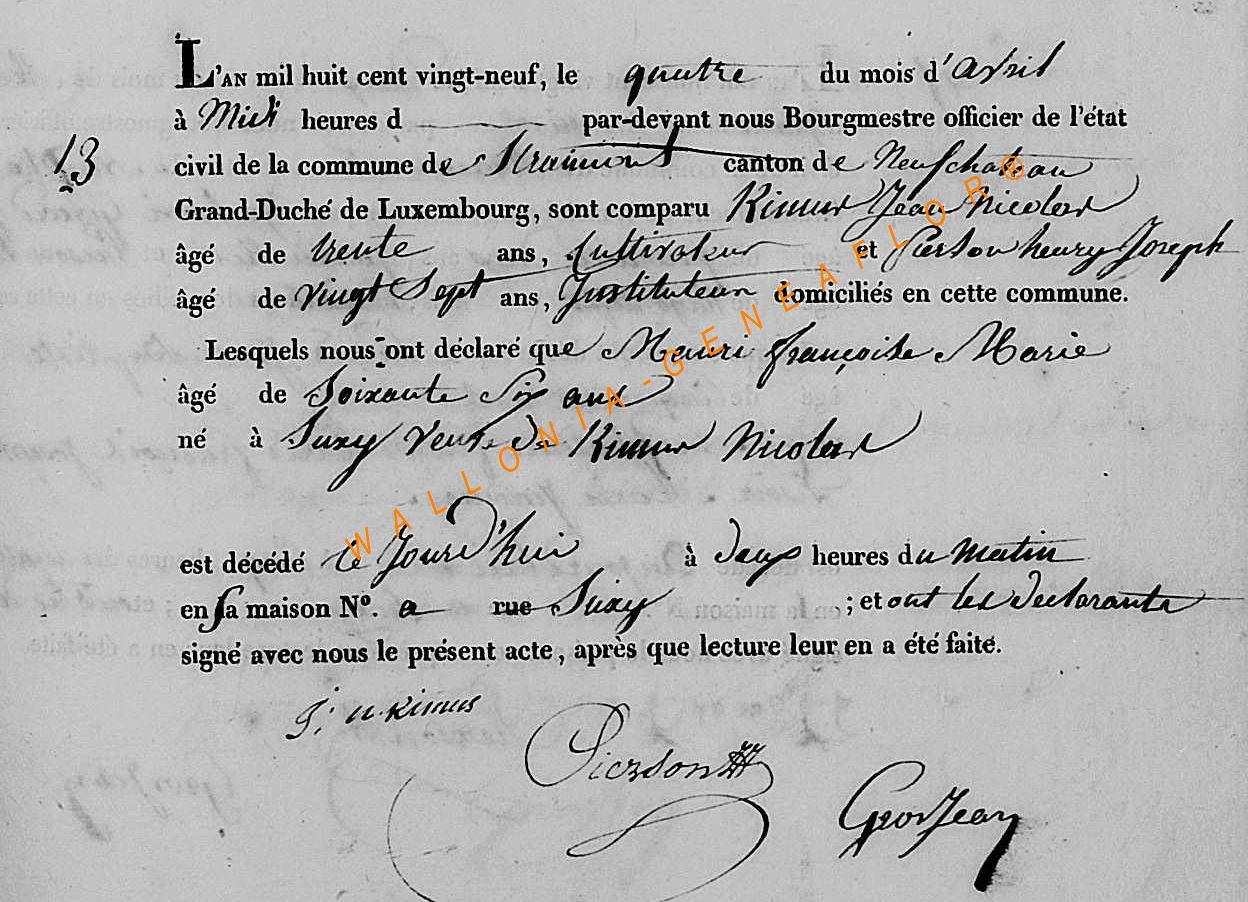 L'AN mil huit cent vingt-neuf, le quatre du mois d'Avril
à Midi heures d par-devant nous Bourgmestre officier de l'état
13
civil de la commune de Straimont canton de Neufchateau
Grand-Duché de Luxembourg, sont comparu Kimus Jean Nicolas
âgé de trente ans, Cultivateur et Pierson henry Joseph
âgé de vingt Sept ans, Instituteur domiciliés en cette commune.
Lesquels nous ont déclaré que françoise Marie
âgé de Soixante Six ans
né à Suxy Veuve de Kimus Nicolas
est décédé le Jourd'hui à deux heures du Matin
en sa maison Nº. a rue Suxy ; et ont les declarants
signé avec nous le présent acte, après que lecture leur en a été faite.
J: n. Kimus
Pierson HJ
GeorJean
WALLONIA-GENEAFLOR®